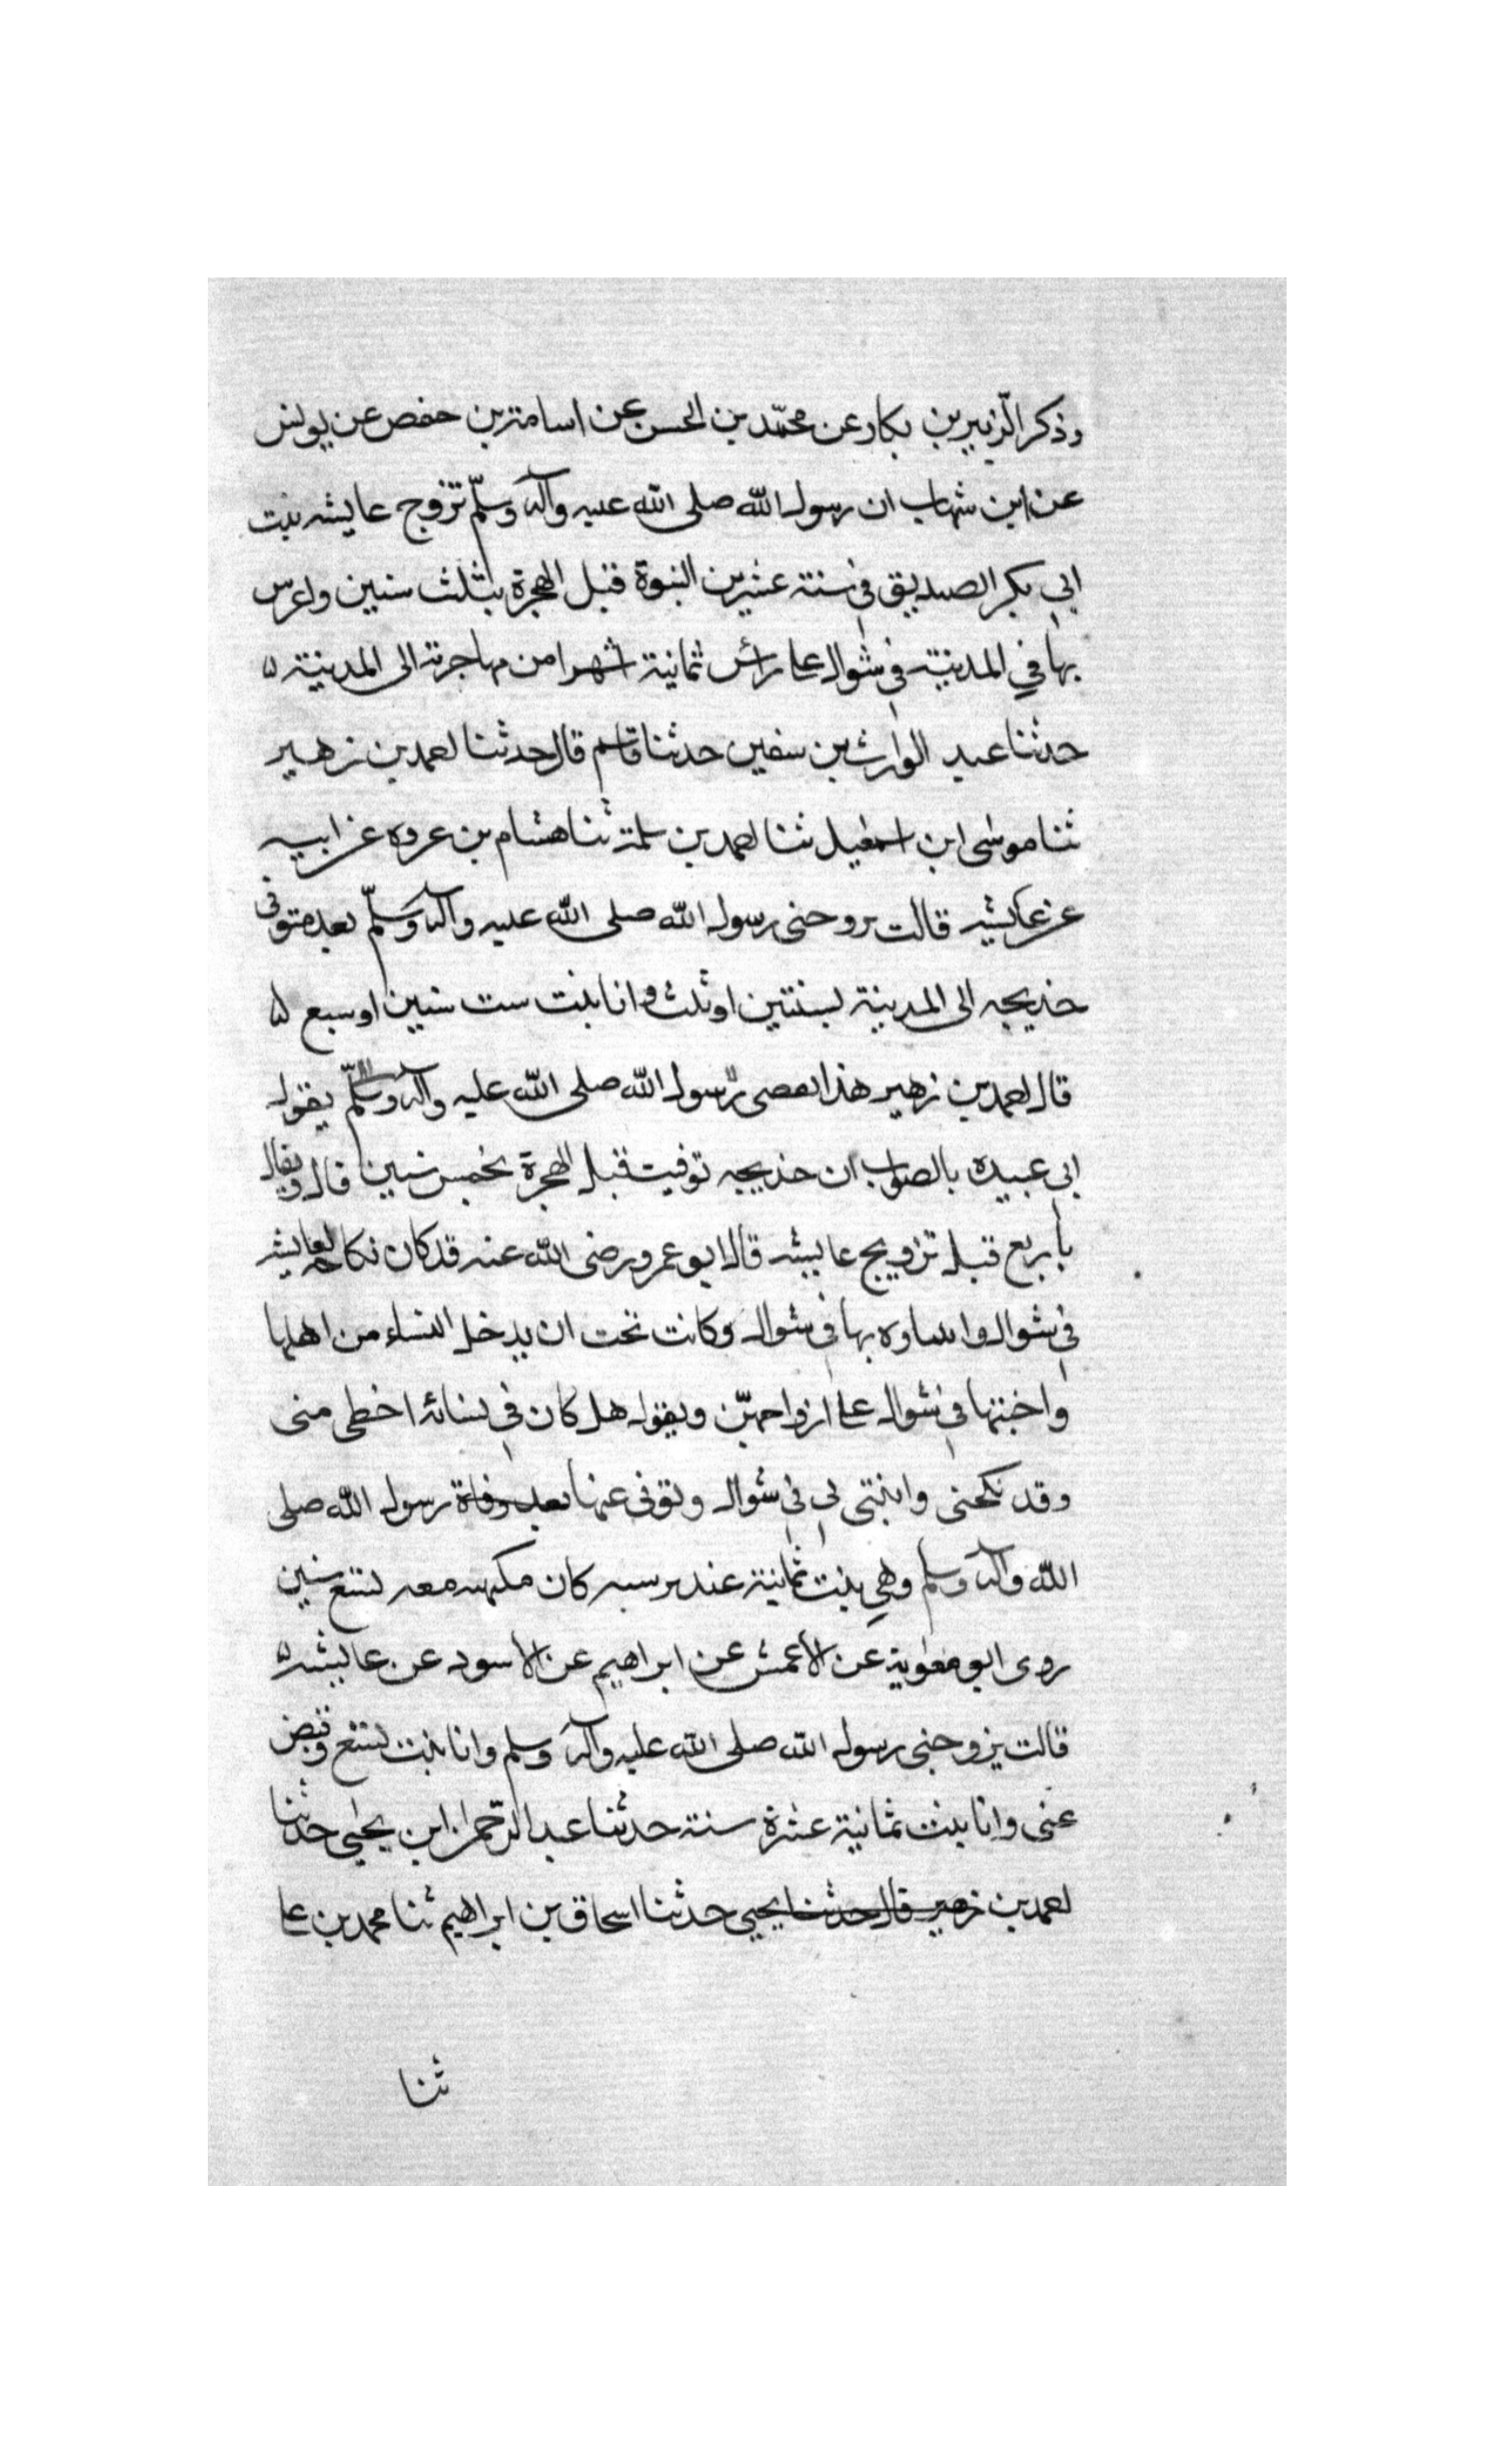 وذكر الزبير بن بكار عن محمّد بن الحسن عن اسامة بن حفص عن يونس
عن ابن شهاب ان رسول الله صلى الله عليه وآله وسلّم تزوج عايشه بنت
ابي بكر الصديق في سنة عشر من النبوة قبل الهجرة بثلث سنين واعرس
بها في المدينة في شوال على رأس ثمانية اشهرا من مهاجرته الى المدينة
حدثنا عبد الوارث بن سفين حدثنا قاسم قال حدثنا احمد بن زهير
ثنا موسى ابن اسمعيل ثنا احمد بن سلمة ثنا هشام بن عروه عن ابيه
عن عايشه قالت تزوجنى رسول الله صلى الله عليه وآله وسلّم بعد متوفى
خديجه الى المدينة بسنتين او ثلث وانا بنت ست سنين او سبع
قال احمد بن زهير هذا رسول الله صلى الله عليه وآله وسلّم يقول
ابي عبيده بالصواب ان خديجه توفيت قبل الهجرة بخمس سنين قال ويقال
بأربع قبل تزويج عايشه قال ابو عمرو رضى الله عنه قد كان نكاحه لعايشه
في شوال بها في شوال وكانت تحت ان يدخل النساء من اهلها
واحبتها في شوال على ازواجهنّ ويقول هل كان في نسائه احظى منى
وقد نكحنى وابتنى لي في شوال وتوفى عنها بعد وفاة رسول الله صلى
الله وآله وسلم وهي بنت ثمانية كان معه لتسع سنين
روى ابو معوية عن الأعمش عن ابراهيم عن الأسود عن عايشه
قالت تزوجنى رسول الله صلى الله عليه وآله وسلم وانا بنت لتسع وقبض
عنى وانا بنت ثمانية عشرة سنة حدثنا عبد الرّحمن ابن يحيى حدثنا
احمد بن زهير قال حدثنا يحيى حدثنا اسحاق بن ابراهيم ثنا محمد بن على
ثنا